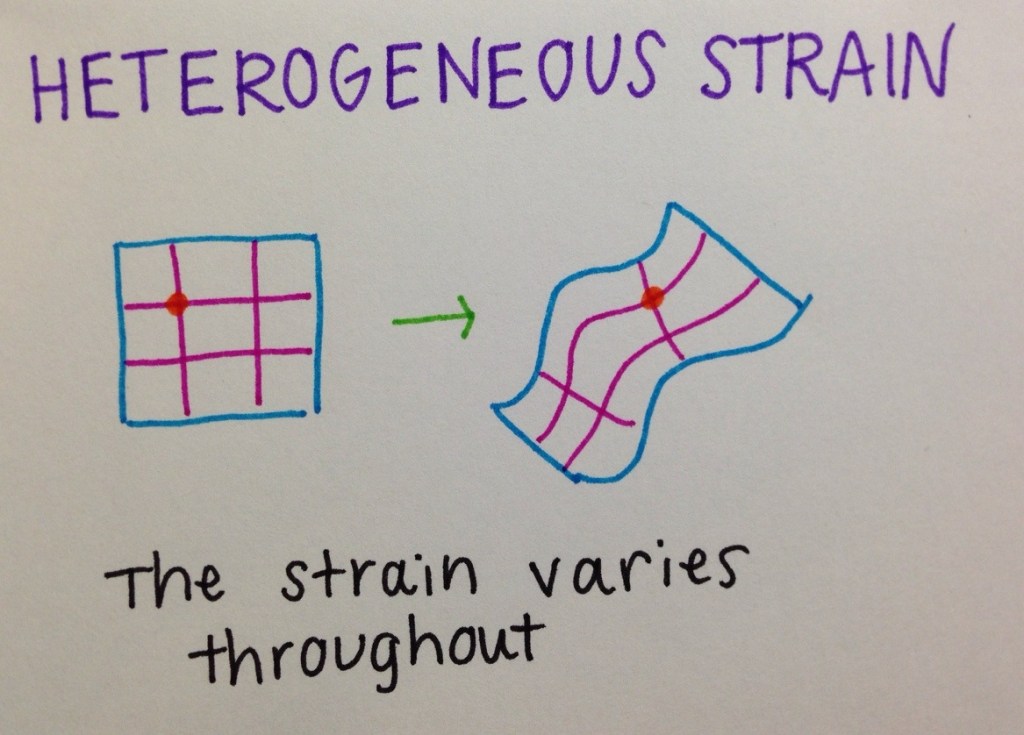 HETEROGENEOUS STRAIN
The strain varies
throughout